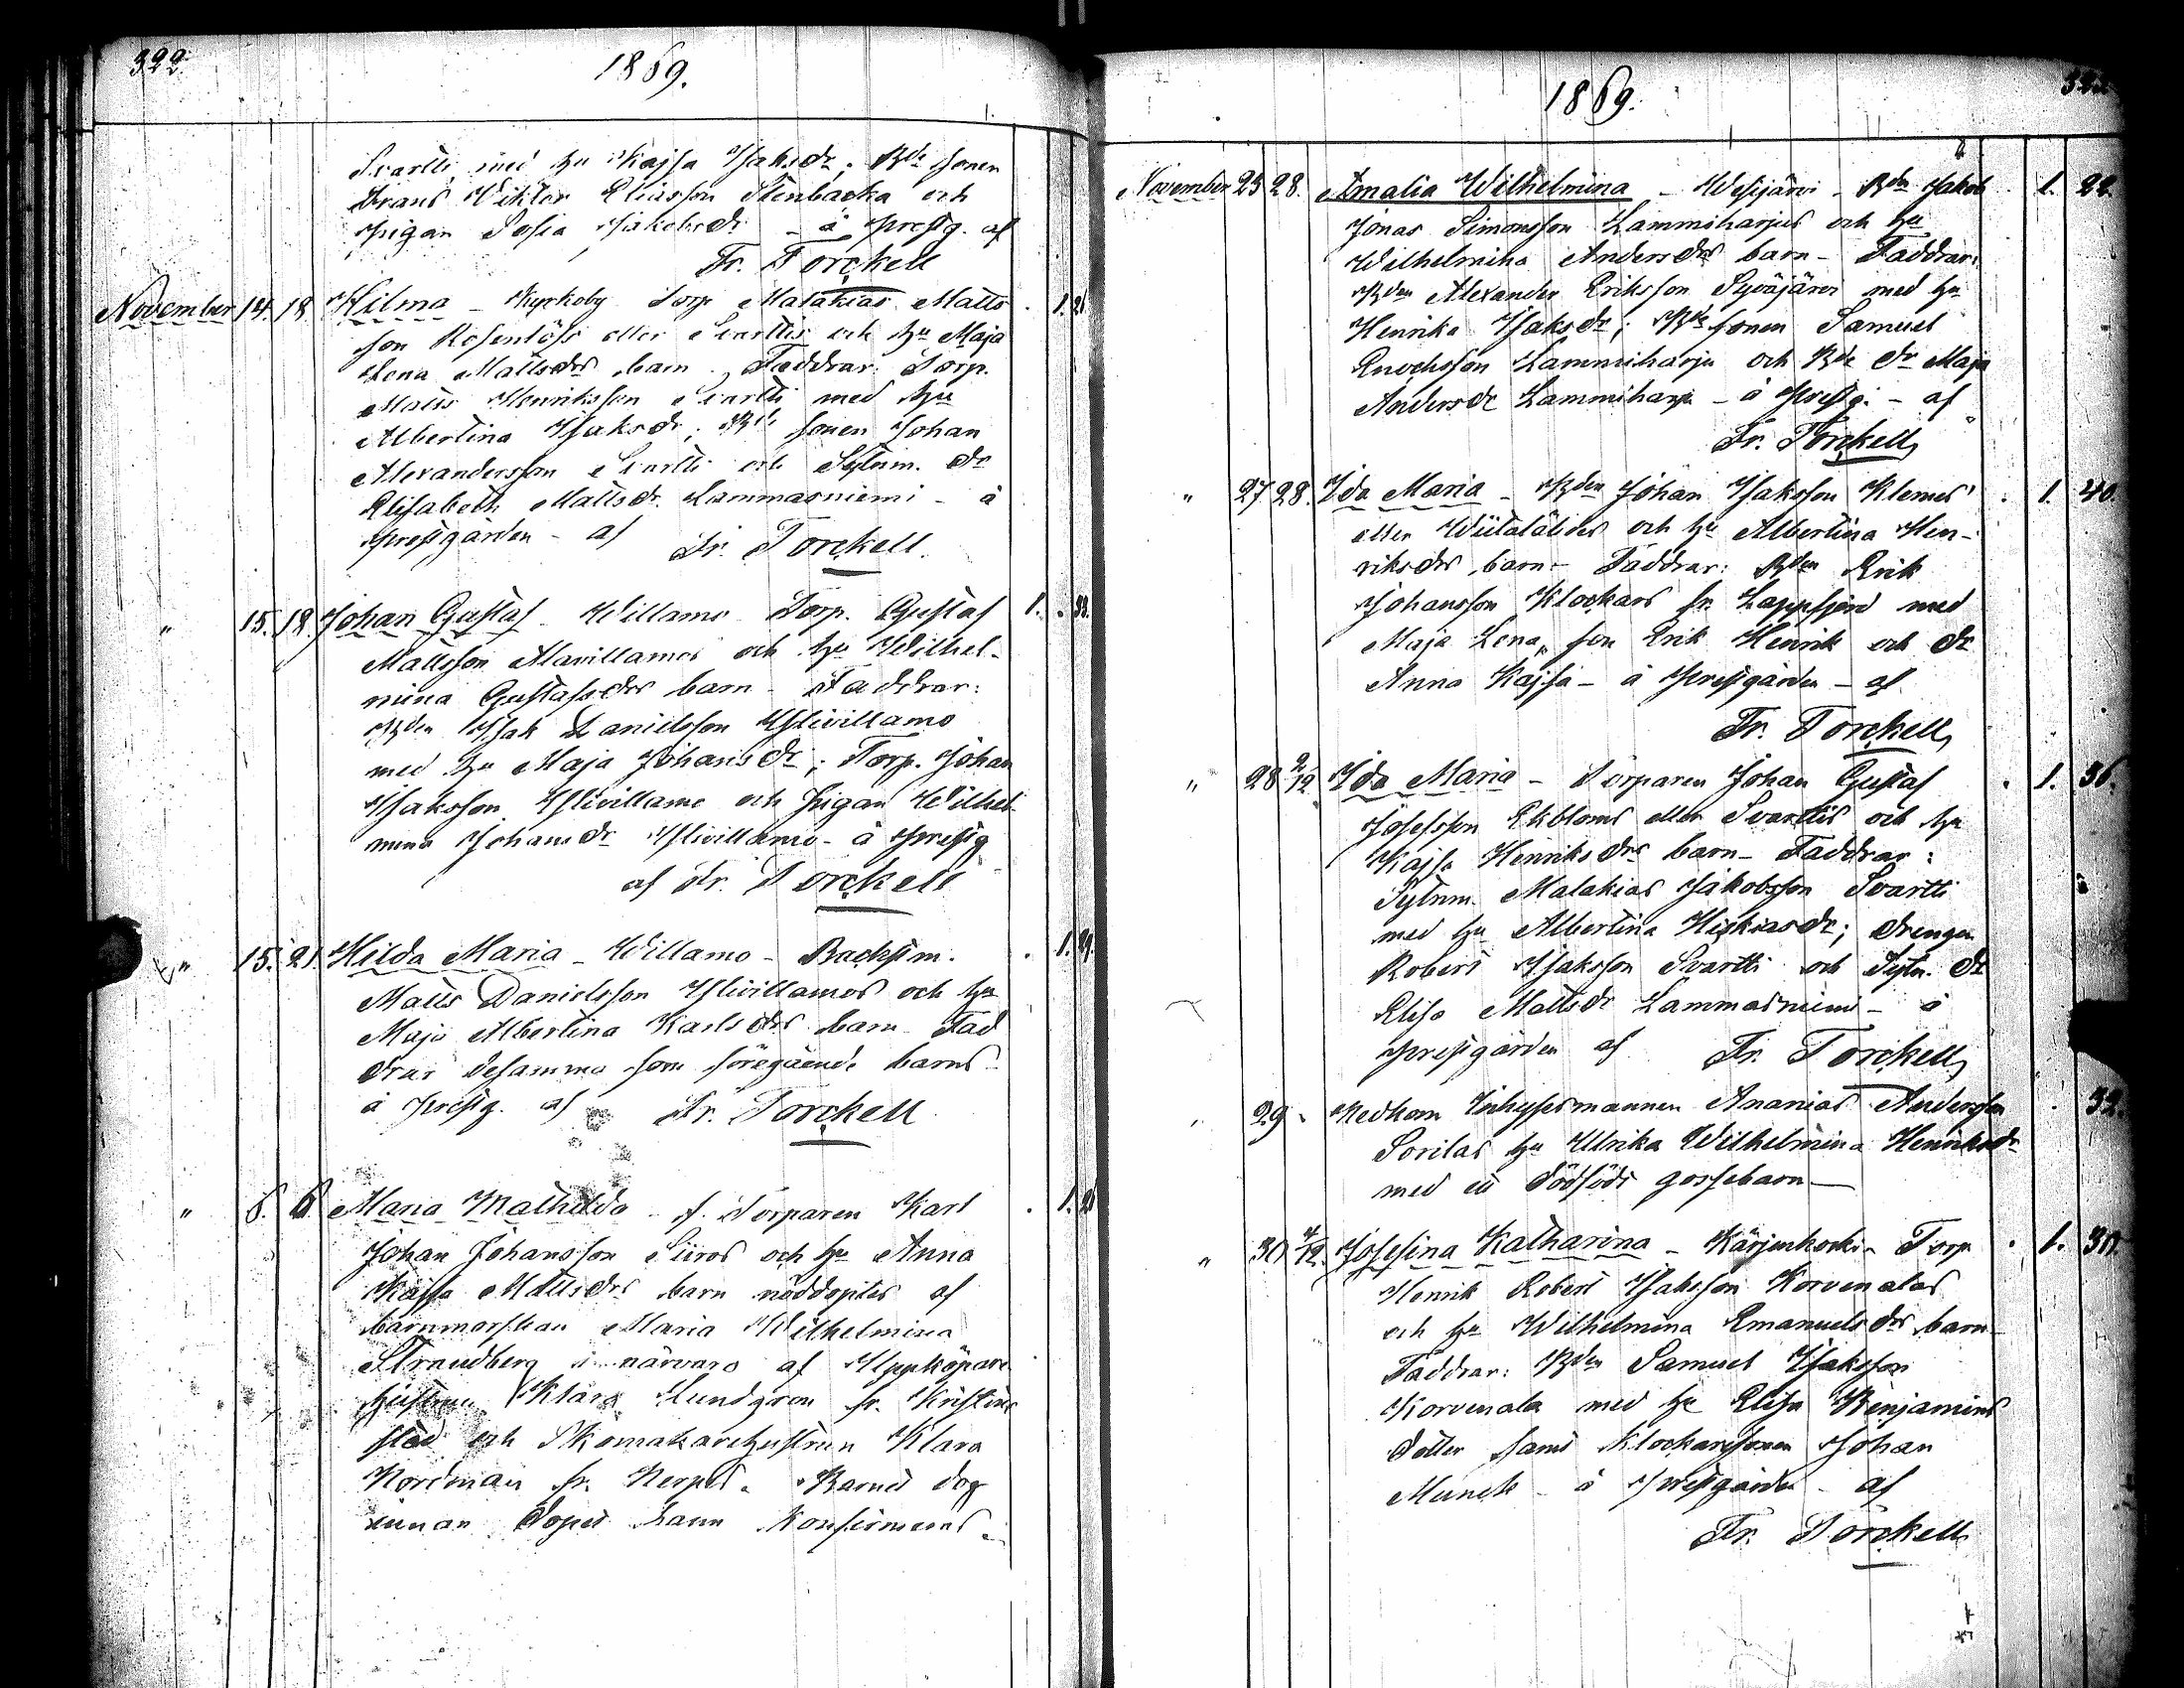 322.
1869.
Svartti med hu Kajsa Isaksdr; Bde sonen
Frans Viktor Eliasson Stenbacka och
pigan Sofia Jakobsdr - å prestg. af
Fr. Torckell
November 14. 18. Hilma - Kyrkoby Torp Malakias Matts . 1. 21
son Rosenlöfs eller Svarttis och hu Maja
Lena Mattsdrs barn - Faddrar: Torp.
Matts Henriksson Svartti med hu
Albertina Isaksdr; Bde sonen Johan
Alexandersson Svartti och Sytnm. dr
Elisabeth Mattsdr. Lammasniemi - å
prestgården - af Fr. Torckell.
" 15. 18. Johan Gustaf - Willamo Torp. Gustaf 1. . 33.
Mattsson Alavillamos och hu Wilhel-
mina Gustafsdrs barn - Faddrar:
Bden Isak Danielsson Ylivillamo
med hu Maja Johansdr; Torp. Johan
Isaksson Ylivillamo och pigan Wilhel-
mina Johansdr Ylivillamo - å prestg
af Fr. Torckell
" 15. 21. Hilda Maria - Willamo - Backstm. . 1. 29.
Matts Danielsson Ylivillamos och hu
Maja Albertina Karlsdrs barn - Fad
drar desamma som föregående barns -
å prestg. af Fr. Torckell
" 6. 6. Maria Mathilda - f. Torparen Karl . 1. 28
Johan Johansson Siiros och hu Anna
Kajsa Mattsdrs barn nöddöptes af
barnmorskan Maria Wilhelmina
Strandberg i närvaro af Uppköpare
hustrun Klara Lundgren fr. Kristine
stad och Skomakarehustrun Klara
Nordman fr. Nerpes. Barnet dog
innan dopet hann konfirmeras.
1869.
November 25 28. Amalia Wilhelmina - Wesijärvi - Bden Jakob . 1. 22.
Jonas Simonsson Lammiharjus och hu
Wilhelmina Andersdrs barn - Faddrar:
Bden Alexander Eriksson Syväjärvi med hu
Henrika Isaksdr; Bde sonen Samuel
Enochsson Lammiharju och Bde dr Maja
Andersdr Lammiharju - å prestg. - af
Fr. Torckell
" 27 28. Ida Maria - Bden Johan Isaksson Klemes' . 1. 40.
eller Wiitaläides och hu Albertina Hen-
riksdrs barn - Faddrar: Bden Erik
Johansson Klockars fr. Lappfjerd med
Maja Lena, son Erik Henrik och dr
Anna Kajsa - å prestgården - af
Fr. Torckell
" 28 2/12 Ida Maria - Torparen Johan Gustaf . 1. 36.
Josefsson Ekbloms eller Svarttis och hu
Kajsa Henriksdrs barn - Faddrar:
Sytnm. Malakias Jakobsson Svartti
med hu Albertina Hiskiasdr; drengen
Robert Isaksson Svartti och Sytn. dr
Elisa Mattsdr Lammasniemi - å
prestgården af Fr. Torckell
" 29 . Nedkom Inhysesmannen Ananias Andersson . 32.
Sorilas hu Ulrika Wilhelmina Henriksdr
med ett dödfödt gossebarn -
" 30 4/12. Josefina Katharina - Kärjenkoski - Torp . 1. 30.
Henrik Robert Isaksson Korvenalas
och hu Wilhelmina Emanuelsdrs barn -
Faddrar: Bden Samuel Isaksson
Korvenala med hu Elisa Benjamins
dotter samt Klockaresonen Johan
Munch - å prestgården - af
Fr. Torckell